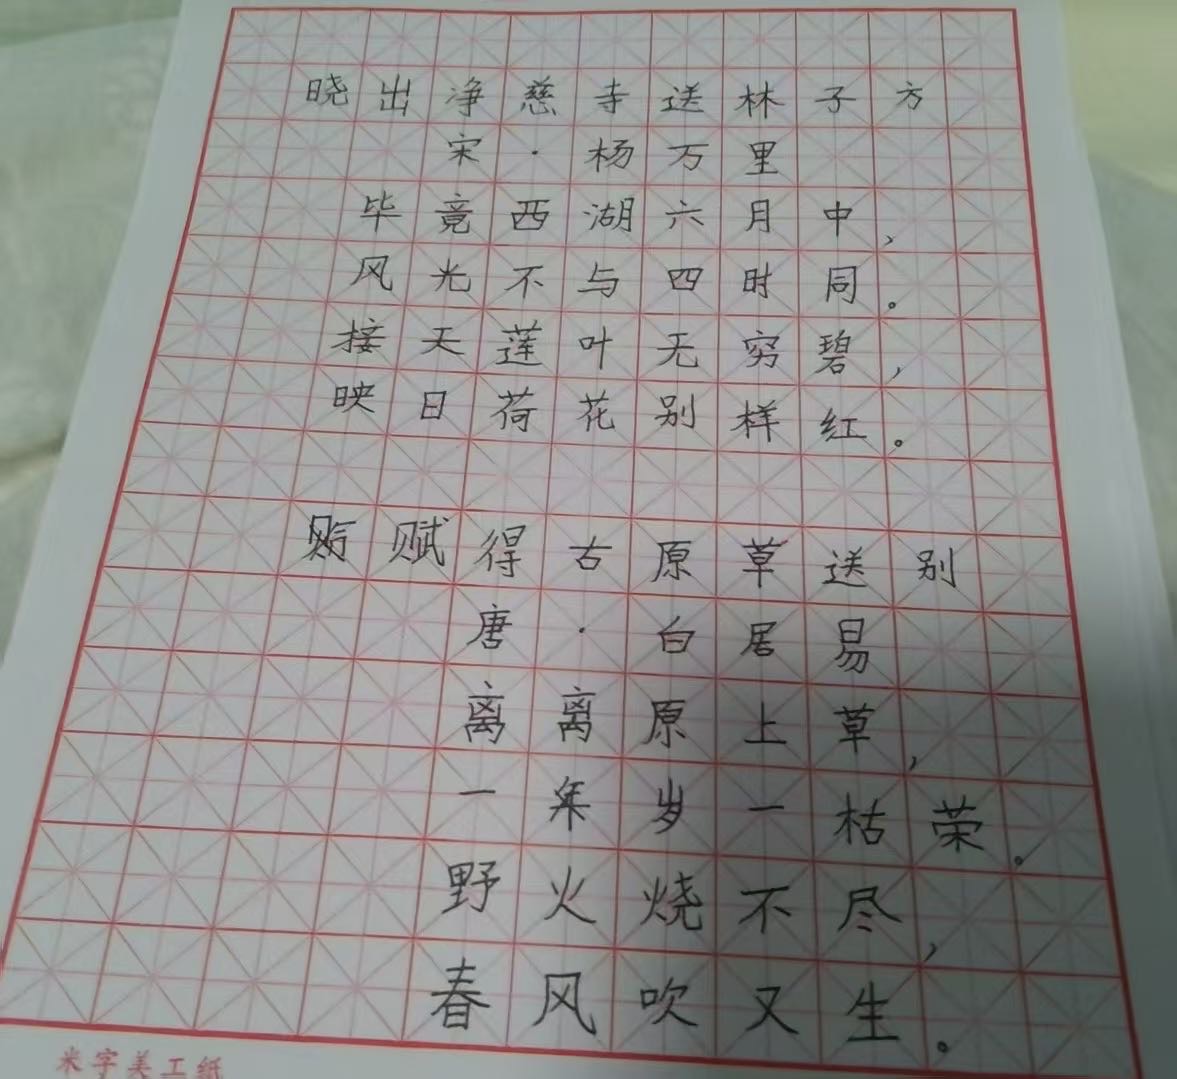 晓出净慈寺送林子方
宋·杨万里
毕竟西湖六月中，
风光不与四时同。
接天莲叶无穷碧，
映日荷花别样红。
赋得古原草送别
唐·白居易
离离原上草，
一年岁一枯荣。
野火烧不尽，
春风吹又生。
米字美工纸